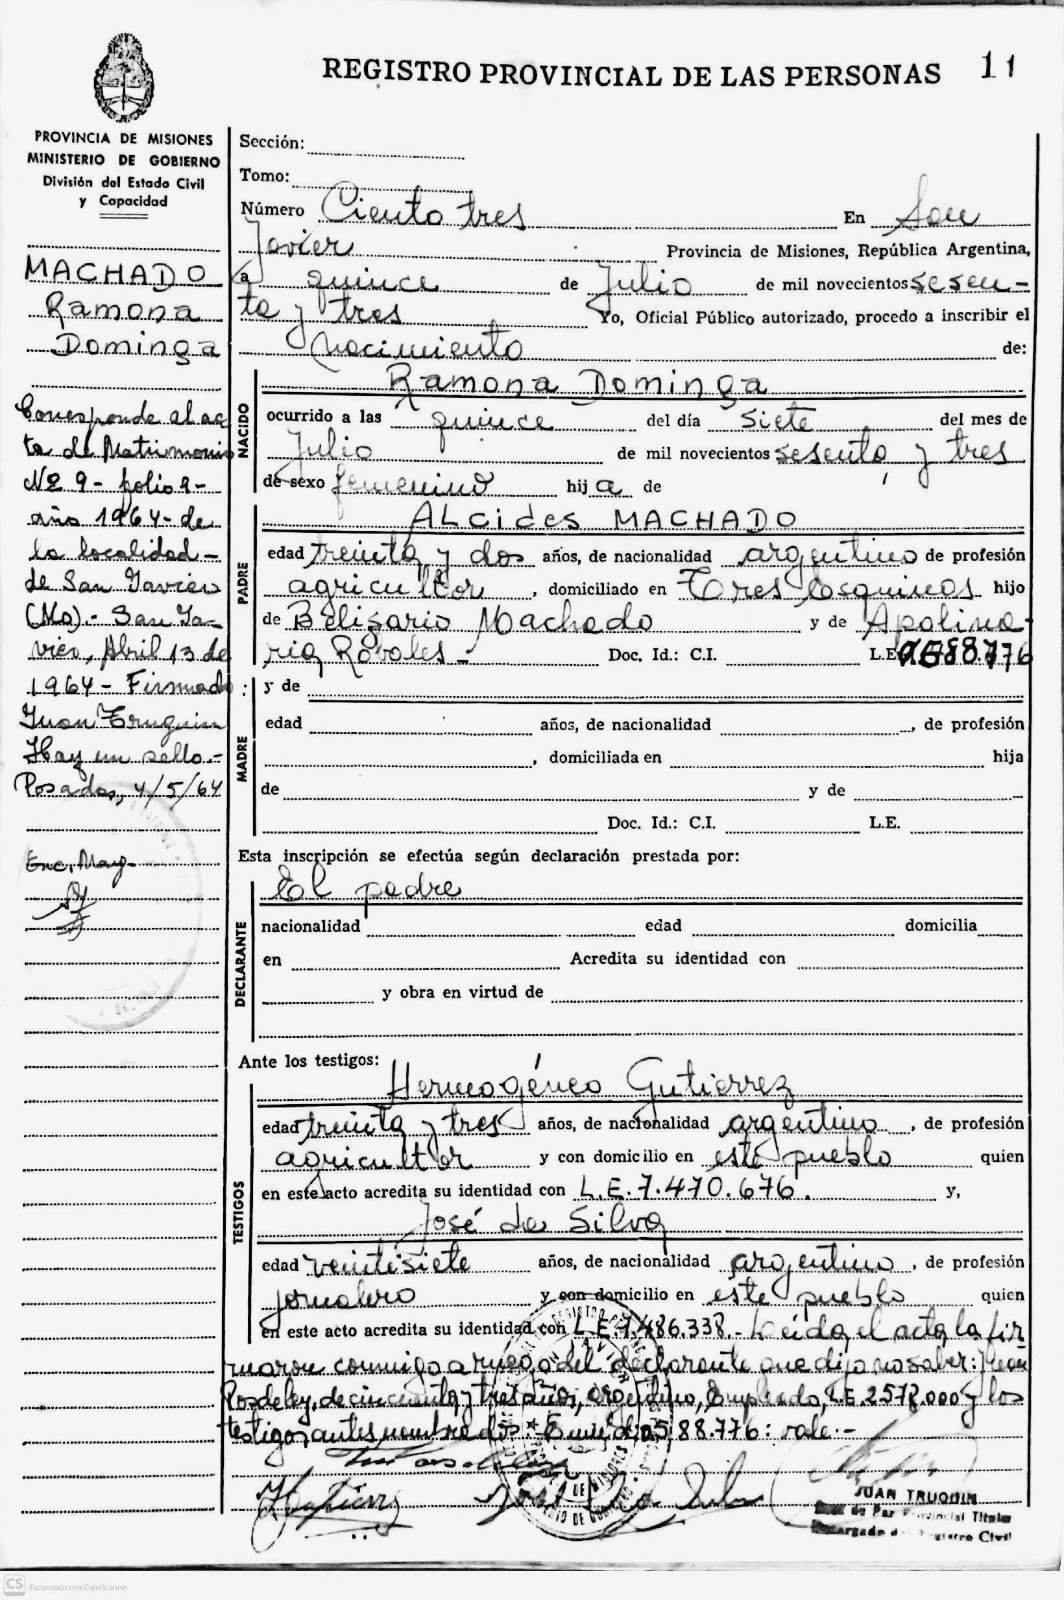 REGISTRO PROVINCIAL DE LAS PERSONAS 11
PROVINCIA DE MISIONES
MINISTERIO DE GOBIERNO
División del Estado Civil
y Capacidad
MACHADO
Ramona
Dominga
Corresponde al ac
ta de Matrimonio
Nº 9- folio 9-
año 1964- de
la localidad-
de San Javier
(Mo).- San Ja-
vier, Abril 13 de
1964- Firmado:
Juan Truquin
Hay un sello.-
Posadas, 4/5/64
Enc. May-
Sección:
Tomo:
Número Ciento tres En San
Javier Provincia de Misiones, República Argentina,
a quince de Julio de mil novecientos sesen-
ta y tres Yo, Oficial Público autorizado, procedo a inscribir el
Nacimiento de:
NACIDO
Ramona Dominga
ocurrido a las quince del día siete del mes de
Julio de mil novecientos sesenta y tres
de sexo femenino hija de
PADRE
ALcides MACHADO
edad treinta y dos años, de nacionalidad argentino de profesión
agricultor, domiciliado en Tres Esquinas hijo
de Belisario Machado y de Apolina-
ria Robales- Doc. Id.: C.I. L.E.
MADRE
y de
edad años, de nacionalidad , de profesión
, domiciliada en hija
de y de
Doc. Id.: C.I. L.E.
Esta inscripción se efectúa según declaración prestada por:
DECLARANTE
El padre
nacionalidad edad domicilia
en Acredita su identidad con
y obra en virtud de
Ante los testigos:
TESTIGOS
Hermogéneo Gutierrez
edad treinta y tres años, de nacionalidad argentino, de profesión
agricultor y con domicilio en este pueblo quien
en este acto acredita su identidad con L.E.7.470.676. y,
José da Silva
edad veintisiete años, de nacionalidad argentino, de profesión
jornalero y con domicilio en este pueblo quien
en este acto acredita su identidad con L.E.7.486.338.- Leida el acta la fir
maron conmigo a ruego del declarante que dijo no saber: Juan
Rosdeley, de cincuenta y tres años, argentino, Empleado, L.E. 2578.000 y los
testigos antes nombrados.- 88.776: vale.-
JUAN TRUQUIN
Juez de Paz Provincial Titular
Encargado del Registro Civil
CS Escaneado con CamScanner